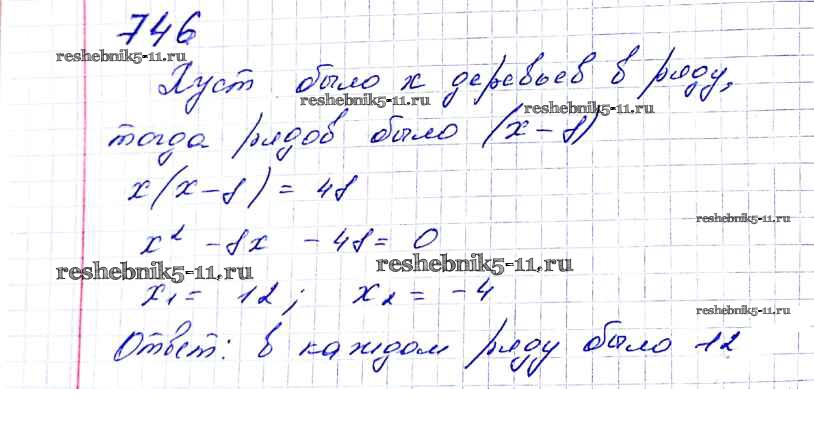 746
reshebnik5-11.ru
Пуст было x деревьев в ряду,
reshebnik5-11.ru
reshebnik5-11.ru
тогда рядов было (x-8)
x(x-8)=48
reshebnik5-11.ru
x² -8x -48=0
reshebnik5-11.ru
reshebnik5-11.ru
x₁= 12; x₂= -4
reshebnik5-11.ru
Ответ: в каждом ряду было 12